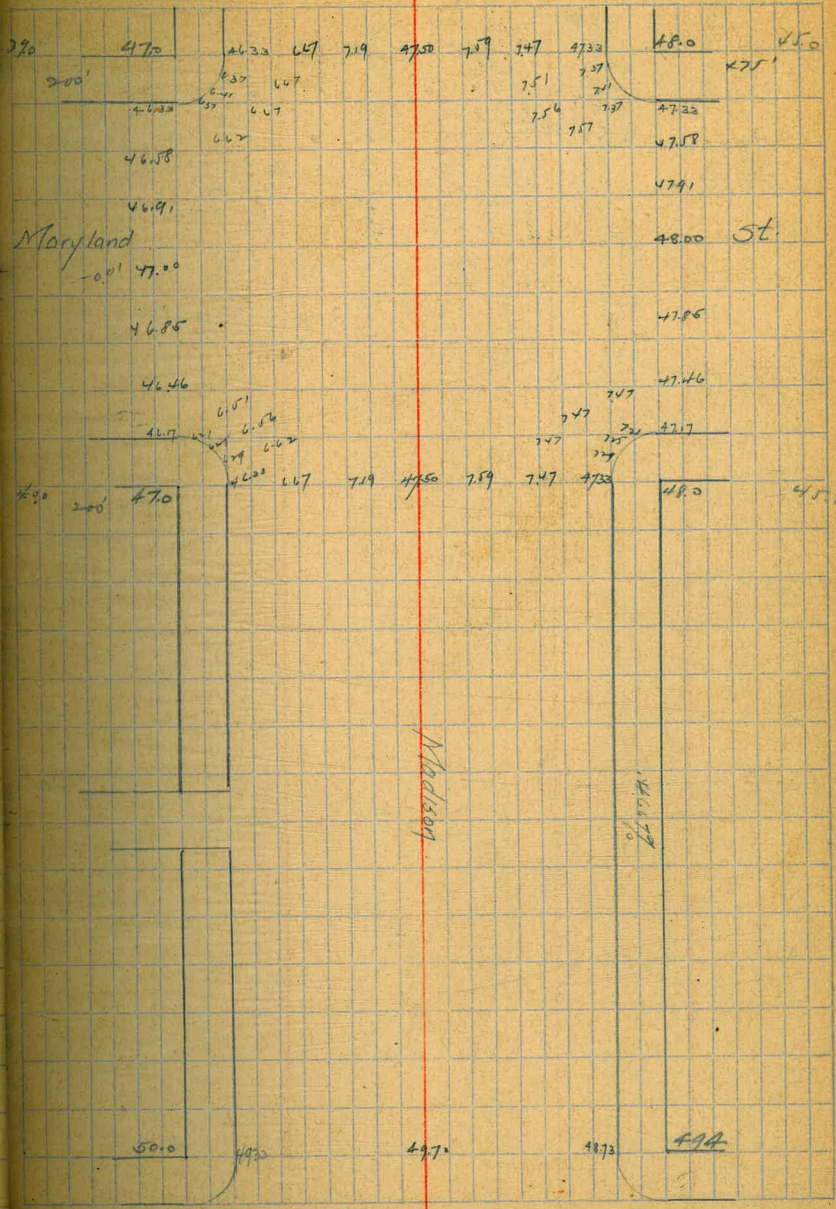 47.0 46.33 6.67 7.19 47.50 7.59 7.47 47.33 48.0 45.0
200' 6.37 6.67 7.51 7.37 +75'
6.41 7.41
46.33 6.37 6.67 7.56 7.37 47.33
6.62 7.57 47.58
46.58
46.91 47.91
Maryland 48.00 St.
47.00
46.85 47.85
46.46 47.46
6.51 7.47
6.56 7.47
46.17 6.62 7.47 7.25 47.17
6.29 7.29
46.33 6.67 7.19 47.50 7.59 7.47 47.33
200' 47.0 48.0 45.
Madison
50.0 49.33 49.70 48.73 49.4